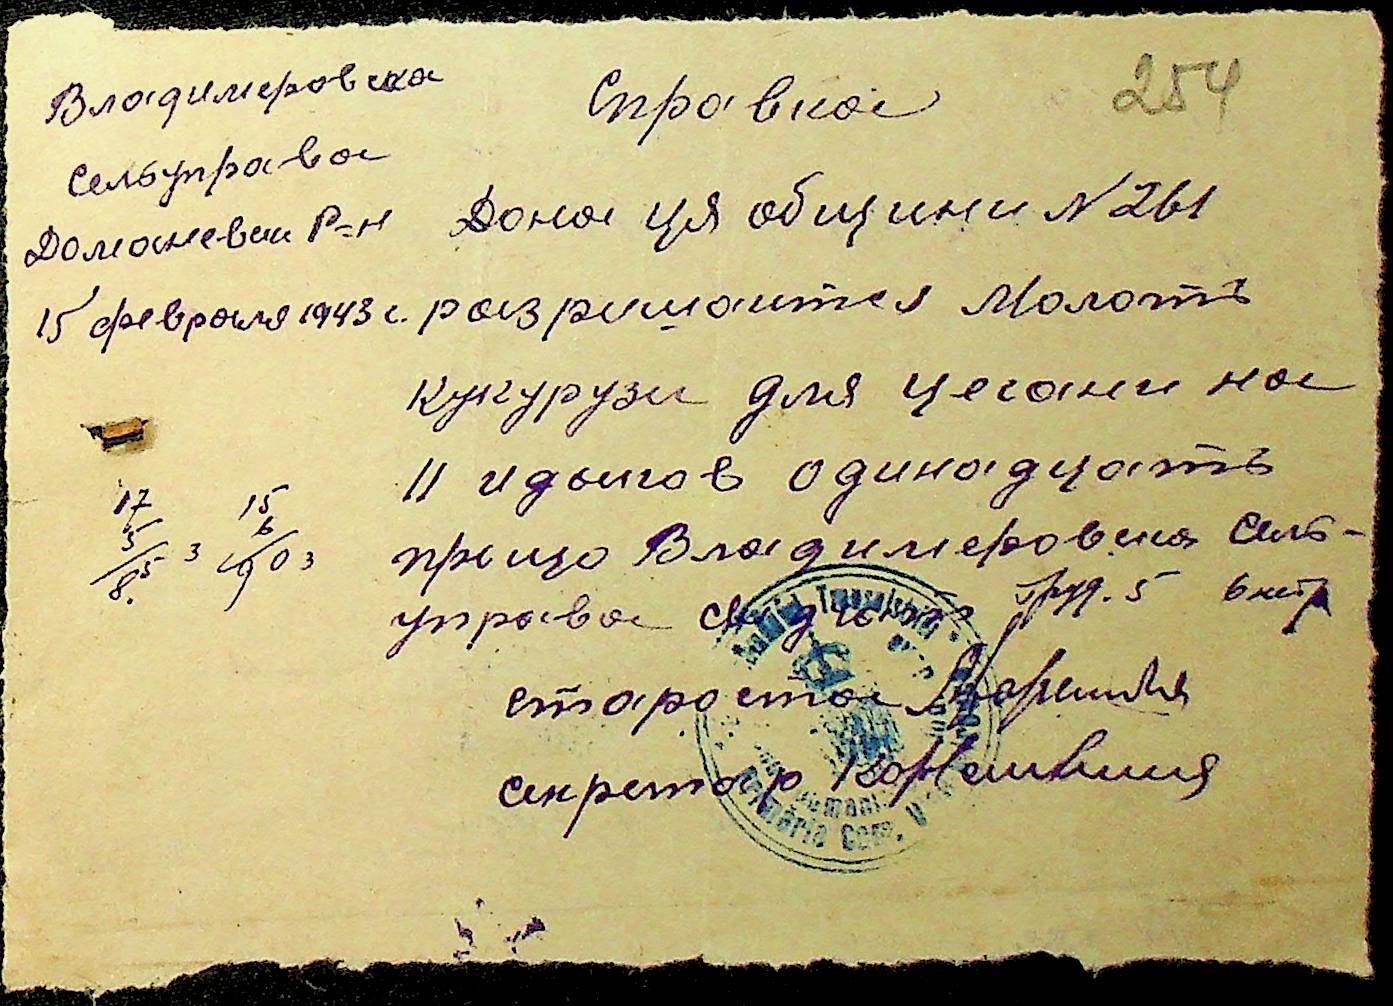 254
Владимеровска
сельуправа
Доманевки Р=н
15 февраля 1943 г.
Справка
Дона ця общини N 261
разришаится молоть
кукурузи для цегани на
11 идыков одинадцать
прыщо Владимеровска Сель-
управа
староста
секретар
17
5
85
3
15
6
90
3
Primăria Com.